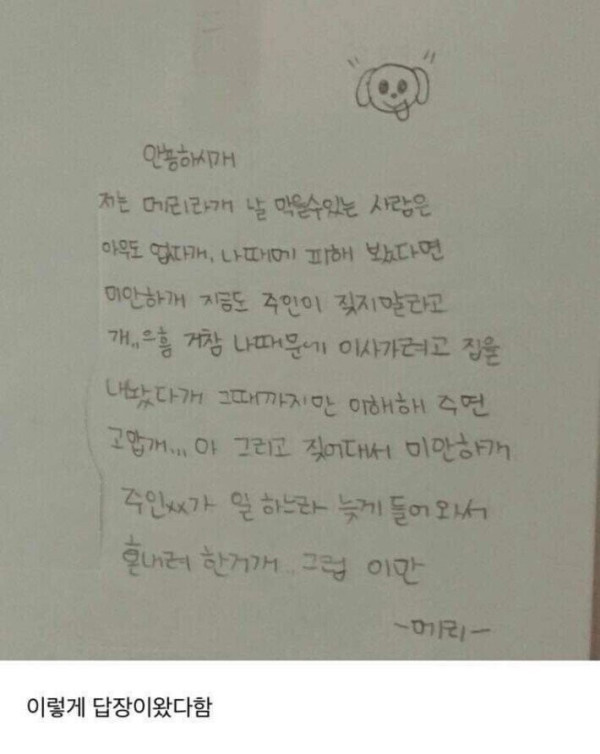 안뇽하시개
저는 메리라개 날 막을수있는 사람은
아무도 업다개, 나때메 피해 보났다면
미안하개 지금도 주인이 짖지말라고
개,,으흠 거참 나때문에 이사가려고 집을
내놨다개 그때까지만 이해해 주면
고맙개,,, 아 그리고 짖어대서 미안하개
주인xx가 일 하느라 늦게 들어와서
혼내려 한거개.. 그럼 이만
-메리-
이렇게 답장이왔다함